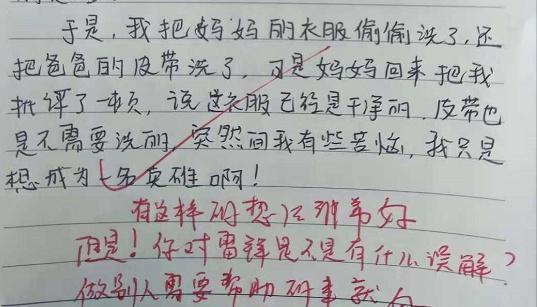 于是,我把妈妈的衣服偷偷洗了,还
把爸爸的皮带洗了,可是妈妈回来把我
批评了一顿,说这衣服已经是干净的,皮带也
是不需要洗的,突然间我有些苦恼,我只是
想成为一名英雄啊!
有这样的想法非常好
但是!你对雷锋是不是有什么误解?
做别人需要帮助的事就